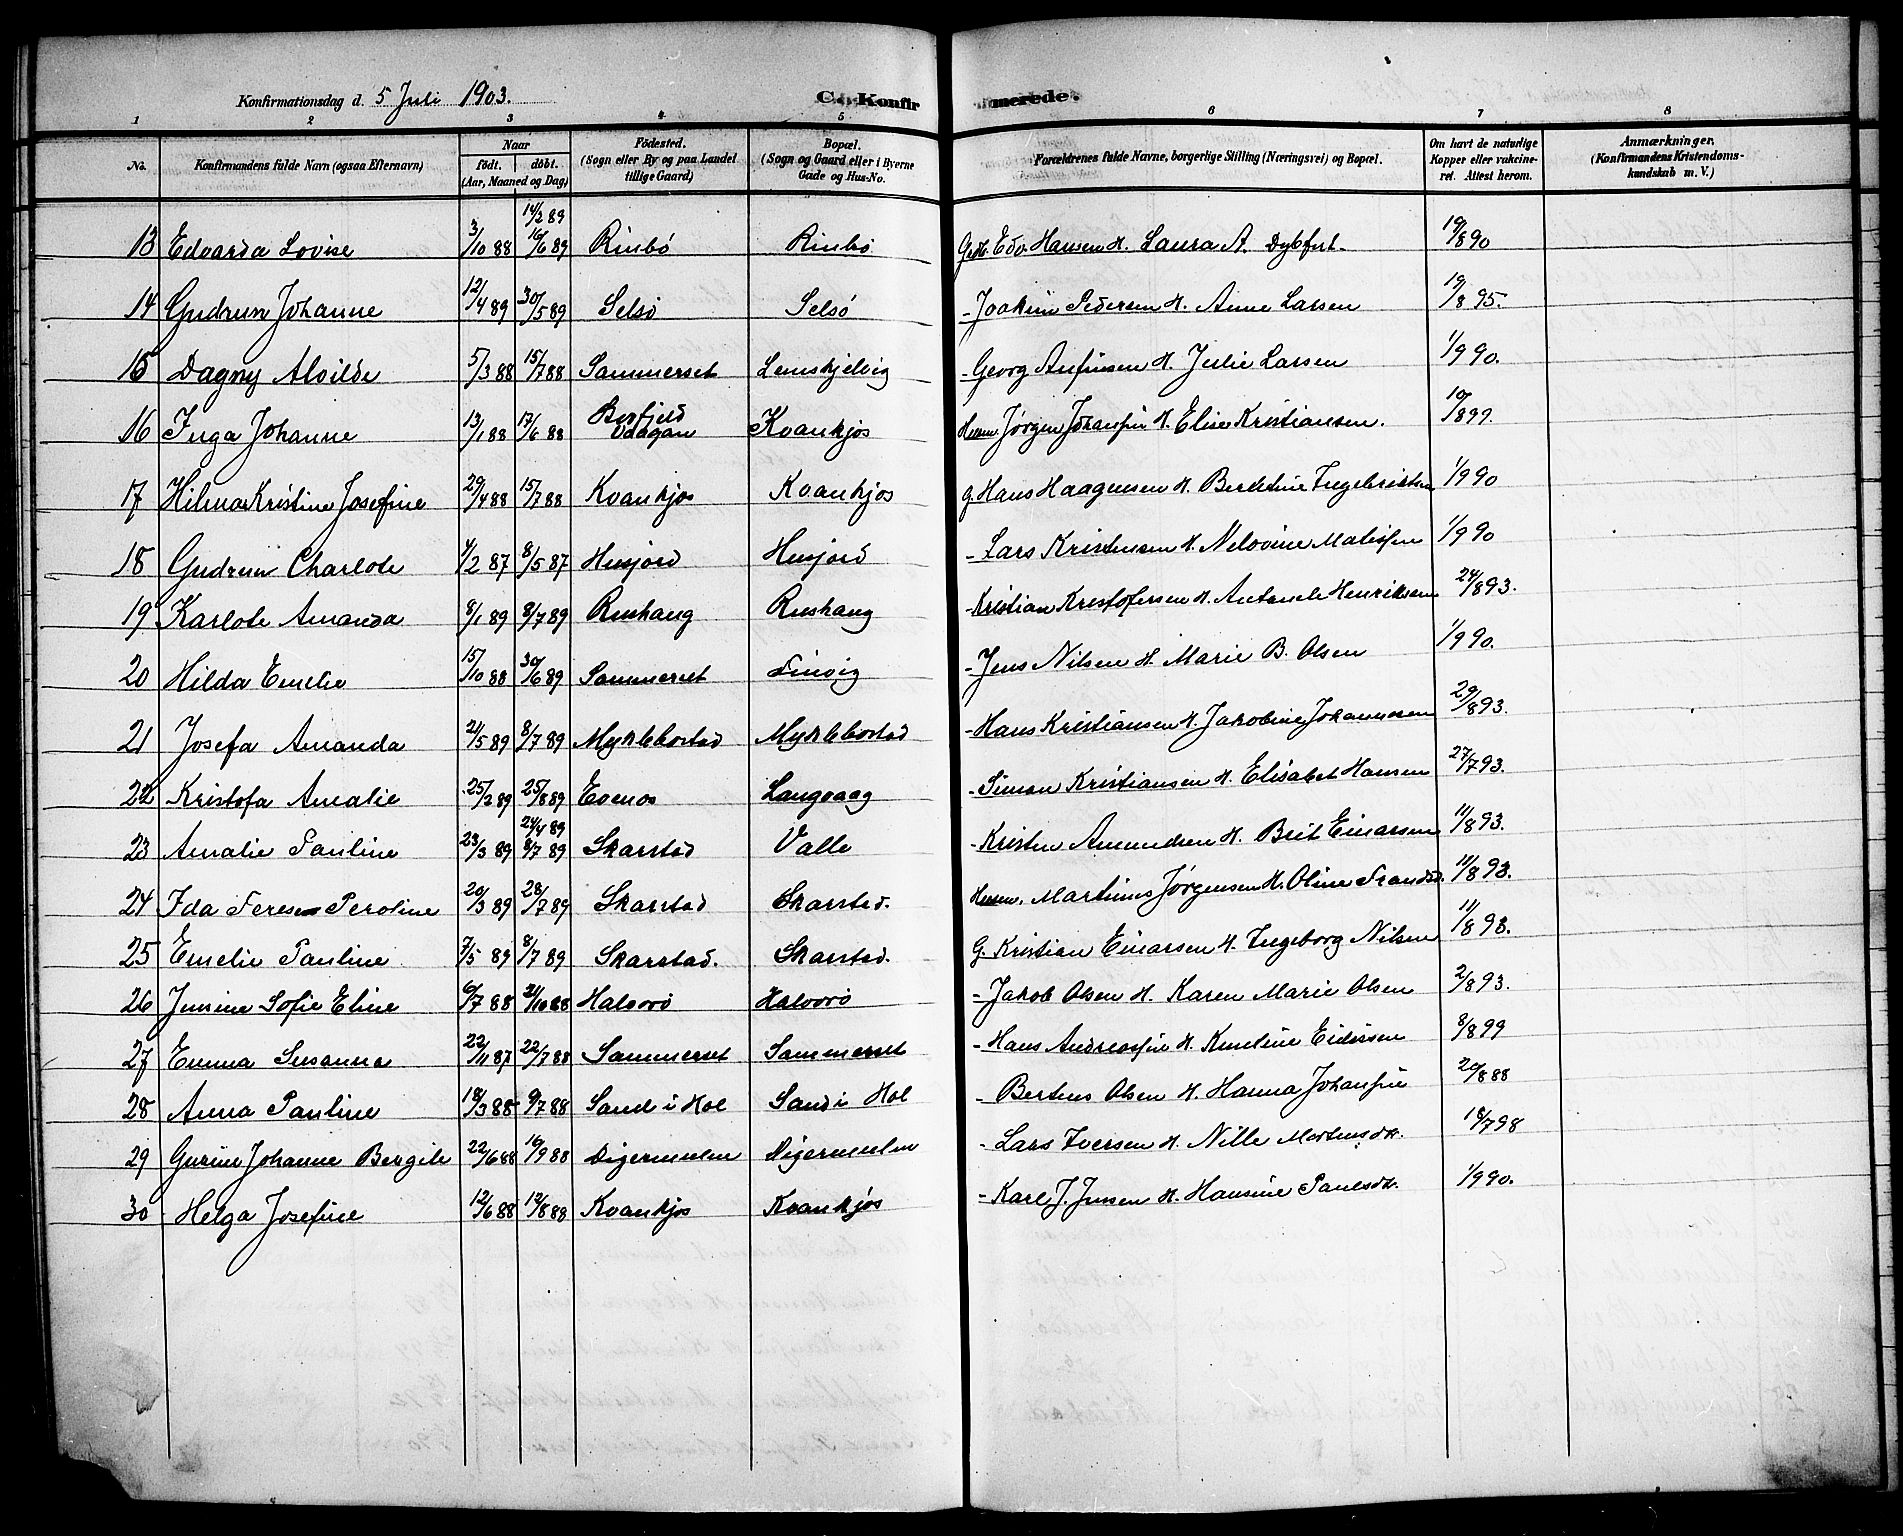 Konfirmationsdag d. 5 Juli 1903. C. Konfirmerede.
1 2 3 4 5 6 7 8
No. Konfirmandens fulde Navn (ogsaa Efternavn) Naar födt. döbt. (Aar, Maaned og Dag) Födested. (Sogn eller By og paa Landet tillige Gaard) Bopæl. (Sogn og Gaard eller i Byerne Gade og Hus-No. Forældrenes fulde Navne, borgerlige Stilling (Næringsvei) og Bopæl. Om havt de naturlige Kopper eller vakcineret. Attest herom. Anmærkninger. (Konfirmandens Kristendomskundskab m. V.)
14/2 89
13 Edvarda Lovise 3/10 88 16/6 89 Rinbö Rinbö Edv. Hansen H. Laura A. Dybfest 19/8 90
14 Gudrun Johanne 12/4 89 30/5 89 Selsö Selsö - Joakim Pedersen H. Anne Larsen 19/8 95.
15 Dagny Alvilde 5/3 88 15/7 88 Sammerset Lemskjelvig - Georg Anfinsen H. Julie Larsen 1/9 90.
16 Inga Johanne 13/1 88 17/6 88 Kvankjos Jørgen Johansen H. Elise Kristiansen. 19/8 99.
17 Hilma Kristine Josefine 29/4 88 15/7 88 Kvankjos Kvankjos g. Hans Haagensen H. Berntine Ingebrigtsen 1/9 90
18 Gudrun Charlote 4/2 87 8/5 87 Husjord Husjord - Lars Kristensen H. 1/9 90
19 Karlote Amanda 8/1 89 8/7 89 Rushaug Rushaug - Kristian Kristofersen H. Henriksen 24/8 93.
20 Hilda Emelie 15/10 88 30/6 89 Sammerset Finvig - Jens Nilsen H. Marie B. Olsen 1/9 90.
21 Josefa Amanda 21/5 89 8/7 89 Myklebostad Myklebostad - Hans Kristiansen H. Jakobine Johannesen 29/8 93.
22 Kristofa Amalie 25/2 89 25/8 89 Evenes Langvaag - Simon Kristiansen H. Elisabet Hansen 27/7 93.
24/4 89
23 Amalie Pauline 23/3 89 8/7 89 Skarstad Valle - Kristen Amundsen H. Brit Einarsen 11/8 93.
24 Ida Peroline 20/3 89 28/7 89 Skarstad Skarstad. Martinus Jørgensen H. Oline Frandsd. 11/8 93.
25 Emelie Pauline 7/5 89 8/7 89 Skarstad. Skarstad. G. Kristian Einarsen H. Ingeborg Nilsen 11/8 93.
26 Jensine Sofie Eline 6/7 88 21/10 88 Halvorö Halvorö - Jakob Olsen H. Karen Marie Olsen 2/8 93.
27 Emma Susanna 22/11 87 22/7 88 Sammerset Sammerset - Hans Andreassen H. Kundine Eidissen 8/8 99
28 Anna Pauline 18/3 88 9/7 88 Sand i Hol Sand i Hol - Bertens Olsen H. Hanna Johansen 20/8 88
29 Gurine Johanne Bergite 22/6 88 16/9 88 Digermulen Digermulen - Lars Iversen H. Nille Mortensdtr. 18/7 98
30 Helga Josefine 12/6 88 12/8 88 Kvankjos Kvankjos - Karl J. Jensen H. Hansine Paulsdtr. 1/9 90.